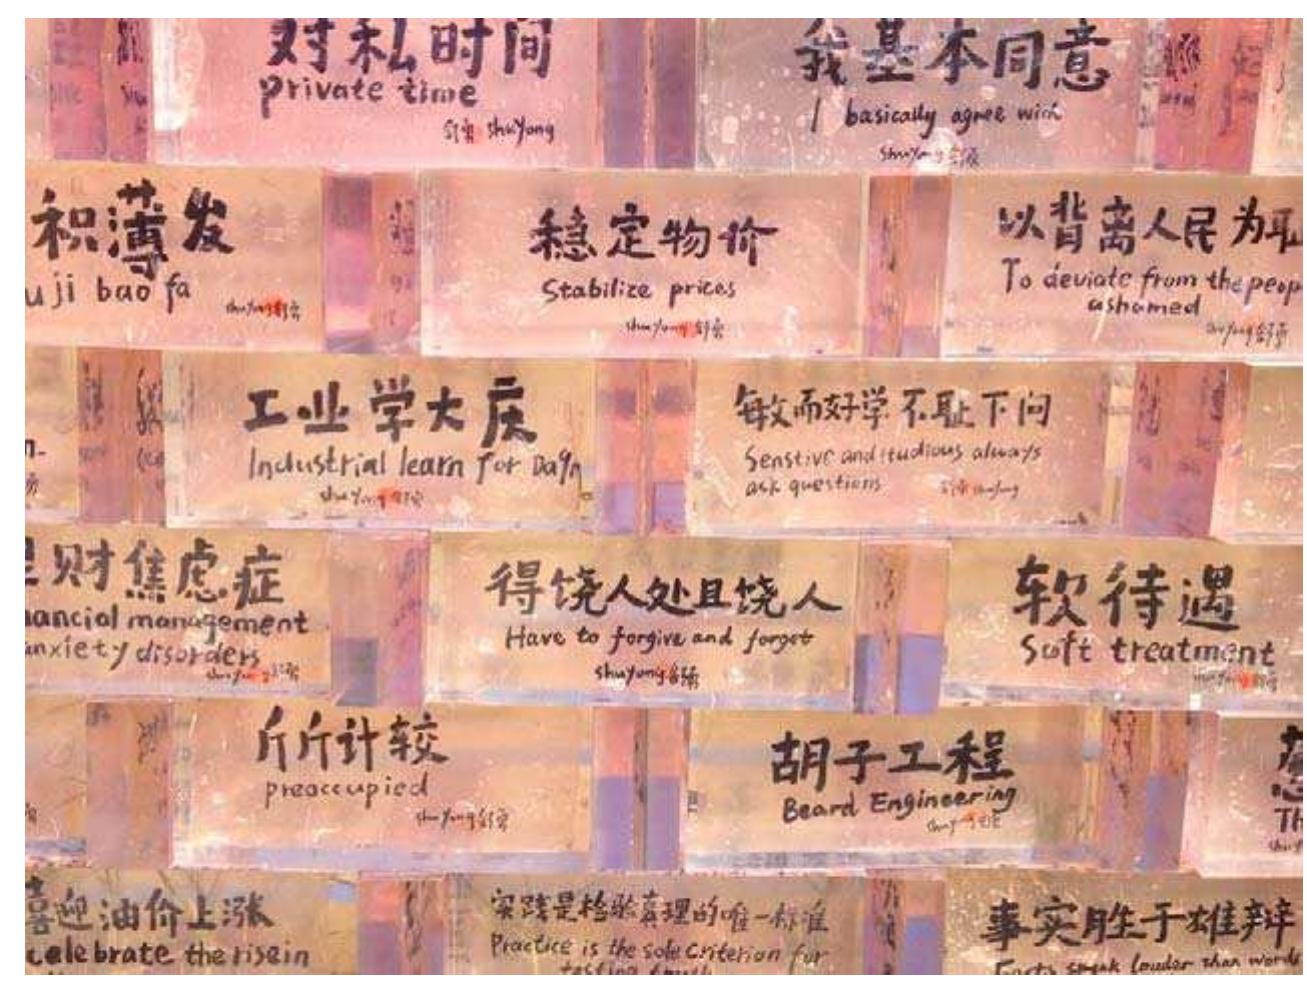 对私时间
private time
舒勇 shuYong
我基本同意
I basically agree with
shuYong 舒勇
积薄发
uji bao fa
shuYong舒勇
稳定物价
Stabilize prices
shuYong舒勇
以背离人民为耻
To deviate from the peop
ashamed
shuYong舒勇
工业学大庆
Industrial learn for Daqn
shuYong舒勇
敏而好学 不耻下问
Senstive and studious always
ask questions
舒勇 shuYong
财焦虑症
nancial management
anxiety disorders
shuYong舒勇
得饶人处且饶人
Have to forgive and forget
shuYong舒勇
软待遇
Soft treatment
shuYong舒勇
斤斤计较
preoccupied
shuYong舒勇
胡子工程
Beard Engineering
shuYong舒勇
Th
喜迎油价上涨
celebrate the rise in
实践是检验真理的唯一标准
Practice is the sole Criterion for
testing truth
事实胜于雄辩
Facts speak louder than words